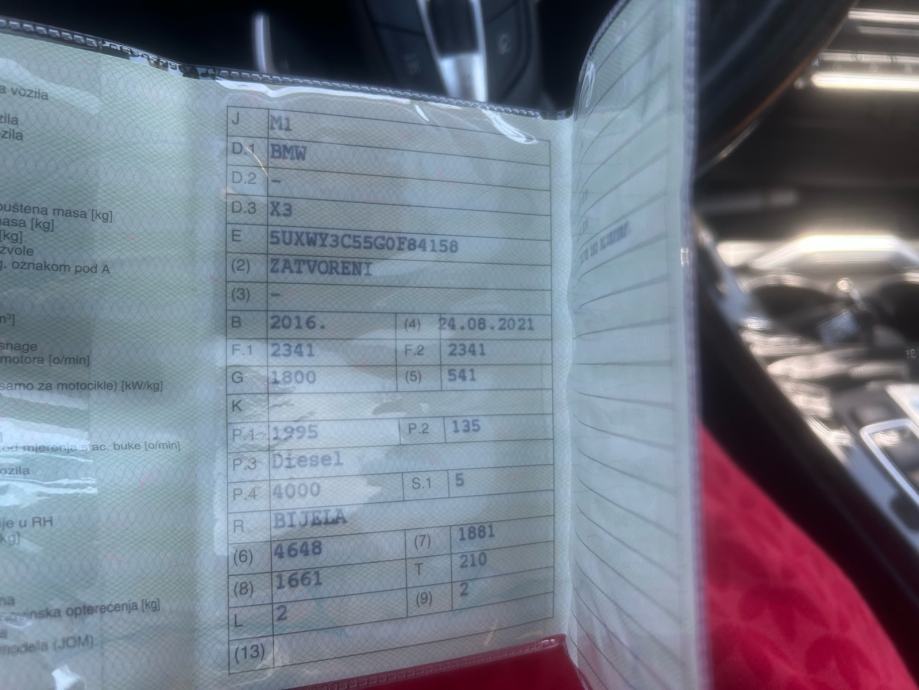 a vozila
zila
ozila
puštena masa [kg]
masa [kg]
[kg]
zvole
g. oznakom pod A
m³]
snage
motora [o/min]
samo za motocikle) [kW/kg]
ac. buke [o/min]
vozila
je u RH
kg]
na
opterećenja [kg]
modela (JOM)
J M1
D.1 BMW
D.2 –
D.3 X3
E 5UXWY3C55G0F84158
(2) ZATVORENI
(3) –
B 2016. (4) 24.08.2021
F.1 2341 F.2 2341
G 1800 (5) 541
K
P.1 1995 P.2 135
P.3 Diesel
P.4 4000 S.1 5
R BIJELA
(6) 4648 (7) 1881
(8) 1661 T 210
L 2 (9) 2
(13)